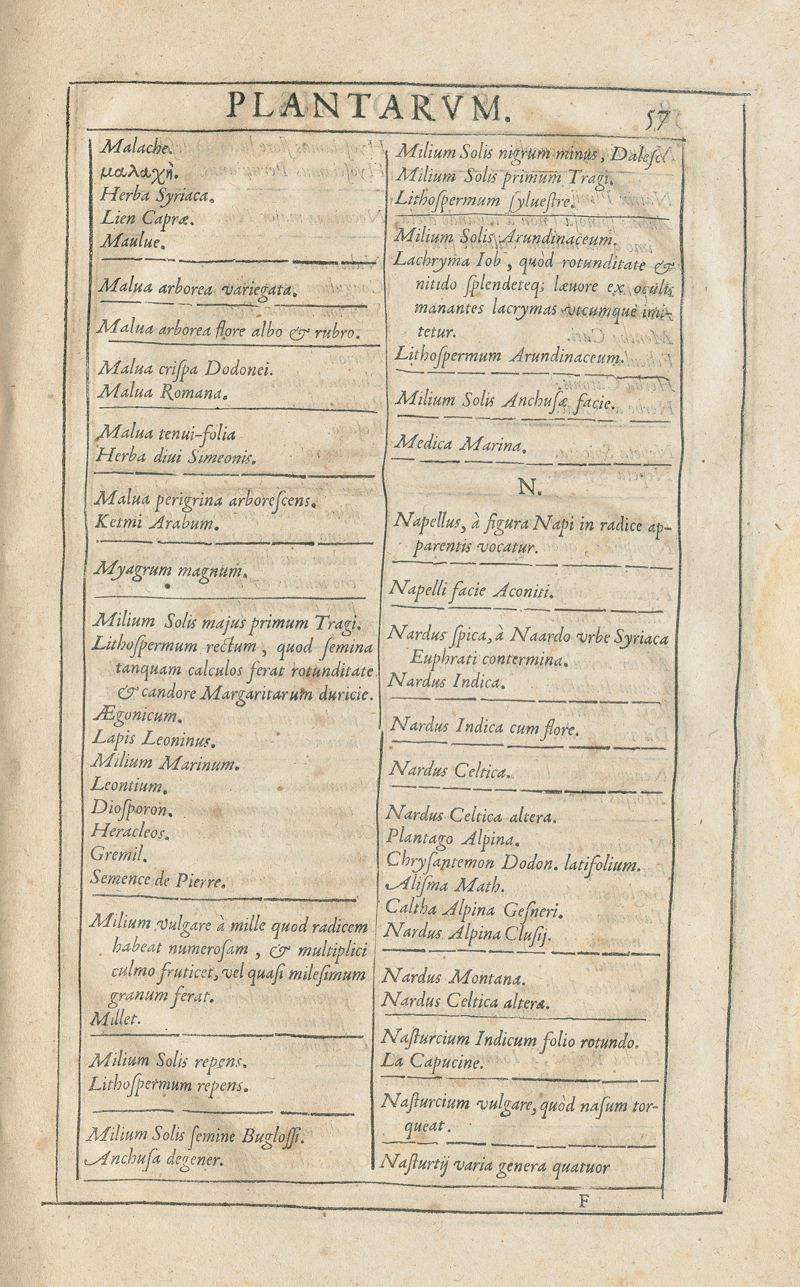 PLANTARVM.
57
Malache.
μαλαχὴ.
Herba Syriaca.
Lien Capræ.
Maulue.
Malua arborea variegata.
Malua arborea flore albo & rubro.
Malua criſpa Dodonei.
Malua Romana.
Malua tenui-folia
Herba diui Simeonis.
Malua perigrina arboreſcens.
Ketmi Arabum.
Myagrum magnum.
Milium Solis majus primum Tragi.
Lithoſpermum rectum, quod ſemina
tanquam calculos ferat rotunditate
& candore Margaritarum duricie.
Ægonicum.
Lapis Leoninus.
Milium Marinum.
Leontium.
Dioſporon.
Heracleos.
Gremil.
Semence de Pierre.
Milium vulgare à mille quod radicem
habeat numeroſam, & multiplici
culmo fruticet, vel quaſi mileſimum
granum ferat.
Millet.
Milium Solis repens.
Lithoſpermum repens.
Milium Solis ſemine Bugloſſi.
Anchuſa degener.
Milium Solis nigrum minus, Daleſcl.
Milium Solis primum Tragi.
Lithoſpermum ſylueſtre.
Milium Solis Arundinaceum.
Lachryma Iob, quòd rotunditate &
nitido ſplendeteq; læuore ex oculis
manantes lacrymas vtcumque imi-
tetur.
Lithoſpermum Arundinaceum.
Milium Solis Anchuſæ facie.
Medica Marina.
N.
Napellus, à figura Napi in radice ap-
parentis vocatur.
Napelli facie Aconiti.
Nardus ſpica, à Naardo vrbe Syriaca
Euphrati contermina.
Nardus Indica.
Nardus Indica cum flore.
Nardus Celtica.
Nardus Celtica altera.
Plantago Alpina.
Chryſantemon Dodon. latifolium.
Aliſma Math.
Caltha Alpina Geſneri.
Nardus Alpina Cluſij.
Nardus Montana.
Nardus Celtica altera.
Naſturcium Indicum folio rotundo.
La Capucine.
Naſturcium vulgare, quòd naſum tor-
queat.
Naſturtij varia genera quatuor
F